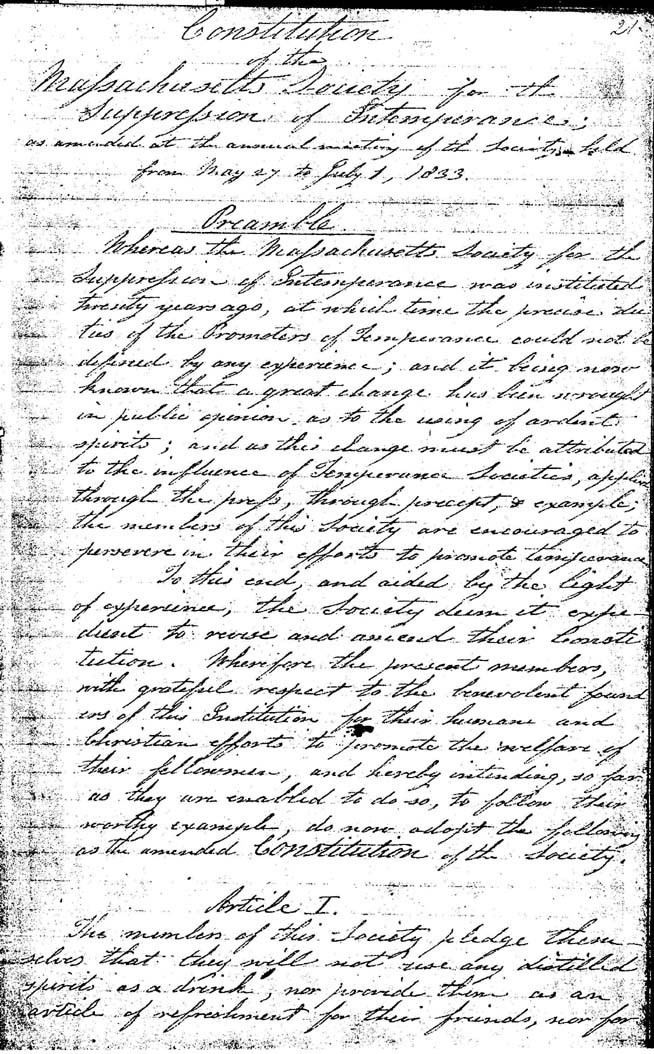 21
Constitution
of the
Massachusetts Society for the
Suppression of Intemperance;
as amended at the annual meeting of the Society held
from May 27 to July 1, 1833.
Preamble.
Whereas the Massachusetts Society for the
Suppression of Intemperance was instituted
twenty years ago, at which time the precise du
ties of the Promoters of Temperance could not be
defined by any experience; and it being now
known that a great change has been wrought
in public opinion as to the using of ardent
spirits; and as this change must be attributed
to the influence of Temperance Societies, applied
through the press, through precept, & example;
the members of this Society are encouraged to
persevere in their efforts to promote temperance
To this end, and aided by the light
of experience, the Society deem it expe-
dient to revise and amend their Consti
tution. Wherefore the present members,
with grateful respect to the benevolent found
ers of this Institution for their humane and
Christian efforts to promote the welfare of
their fellowmen, and hereby intending, so far
as they are enabled to do so, to follow their
worthy example, do now adopt the following
as the amended Constitution of the Society.
Article I.
The members of this Society pledge them-
selves that they will not use any distilled
spirits as a drink, nor provide them as an
article of refreshment for their friends, nor for